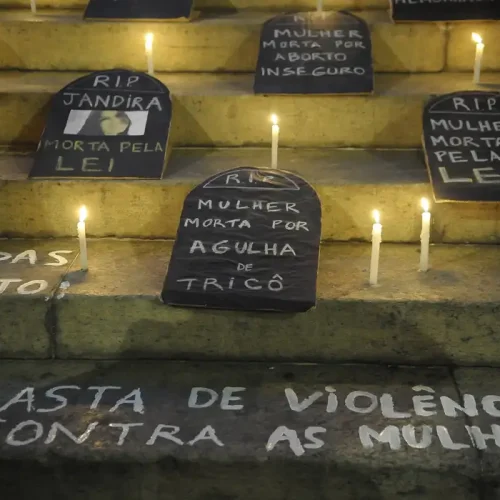 RIP
MULHER
MORTA POR
ABORTO
INSEGURO
RIP
JANDIRA
MORTA PELA
LEI
RIP
MULHER
MORTA
PELA
LEI
RIP
MULHER
MORTA POR
AGULHA
DE
TRICÔ
DAS
TO
ASTA DE VIOLÊNC
CONTRA AS MULH